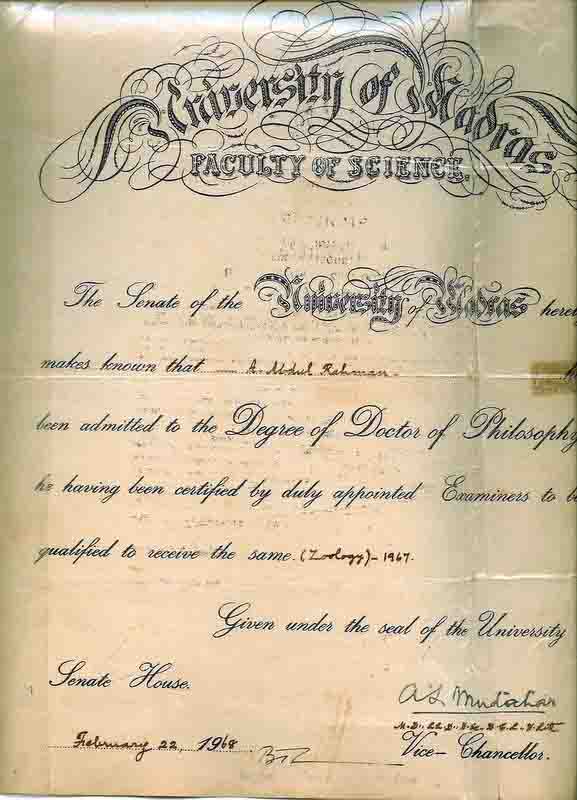 University of Madras
FACULTY OF SCIENCE.
The Senate of the University of Madras here
makes known that A. Abdul Rahman.
been admitted to the Degree of Doctor of Philosophy
he having been certified by duly appointed Examiners to b
qualified to receive the same. (Zoology) - 1967.
Given under the seal of the University
Senate House.
A L Mudaliar
M.D., LL.D., D.Sc., D.C.L.,
February 22, 1968
Vice-Chancellor.